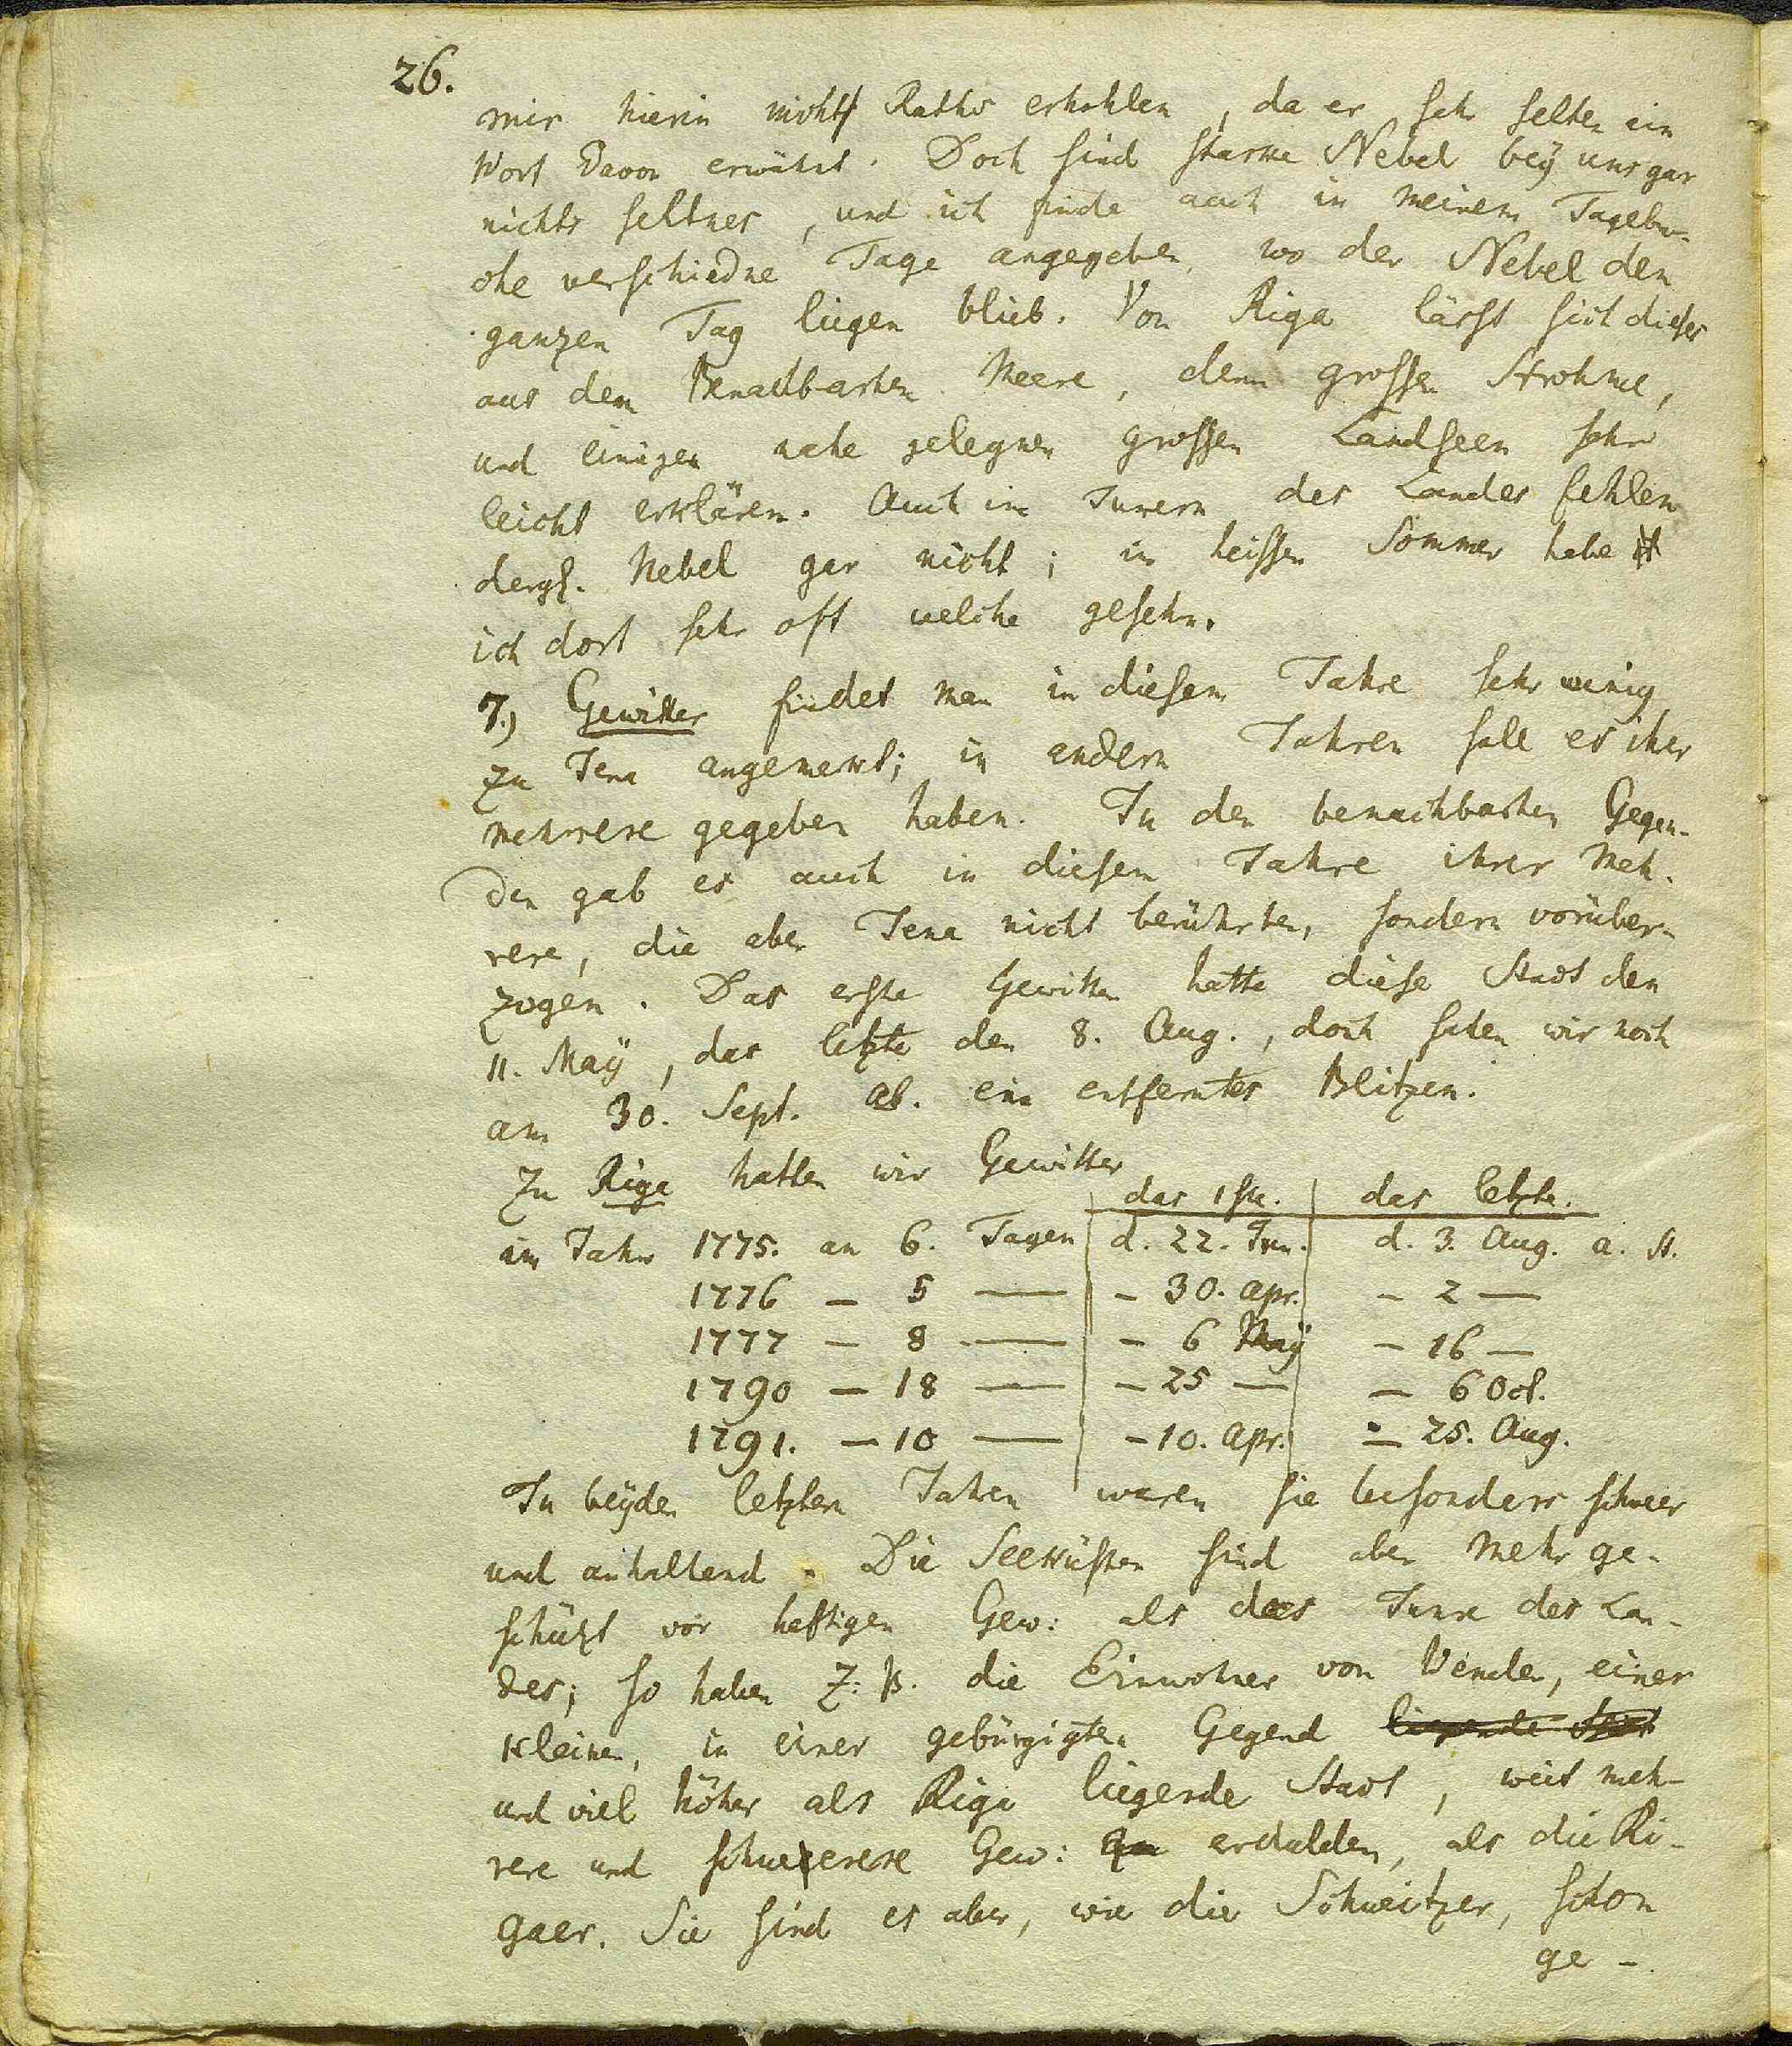 26.
mir hierin nicht Raths erhohlen, da er sehr selten ein
Wort davon erwähnt. Doch sind starke Nebel bey uns gar
nichts seltnes, und ich finde auch in meinem Tagebu-
che verschiedne Tage angegeben, wo der Nebel den
ganzen Tag liegen blieb. Von Riga lässt sich dieses
aus dem benachbarten Meere, dem grossen Strohme,
und einigen nahe gelegnen grossen Landseen sehr
leicht erklären. Auch im Innern des Landes fehlen
dergl. Nebel gar nicht; im heissen Sommer habe
ich dort sehr oft welche gesehn.
7.) Gewitter findet man in diesem Jahre sehr wenig
zu Jena angemerkt; in andern Jahren soll es ihrer
mehrere gegeben haben. In den benachbarten Gegen-
den gab es auch in diesem Jahre ihrer meh-
rere, die aber Jena nicht berührten, sondern vorüber-
zogen. Das erste Gewitter hatte diese Stadt den
11. May, das letzte den 8. Aug., doch sahen wir noch
am 30. Sept. Ab. ein entferntes Blitzen.
Zu Riga hatten wir Gewitter
das 1ste. das letzte.
im Jahr 1775. an 6. Tagen d. 22. Jun. d. 3. Aug. a. St.
1776 — 5 — — 30. Apr. — 2 —
1777 — 8 — — 6 May — 16 —
1790 — 18 — — 25 — — 6 Oct.
1791. — 10 — — 10. Apr. — 25. Aug.
In beyden letztern Jahren waren sie besonders schwer
und anhaltend. Die Seeküsten sind aber mehr ge-
schützt vor heftigen Gew: als das Innre des Lan-
des; so haben z: B. die Einwohner von Wenden, einer
kleinen, in einer gebürgigten Gegend liegende Stadt
und viel höher als Riga liegende Stadt, weit meh-
rere und schwerere Gew: zu erdulden, als die Ri-
gaer. Sie sind es aber, wie die Schweitzer, schon
ge-